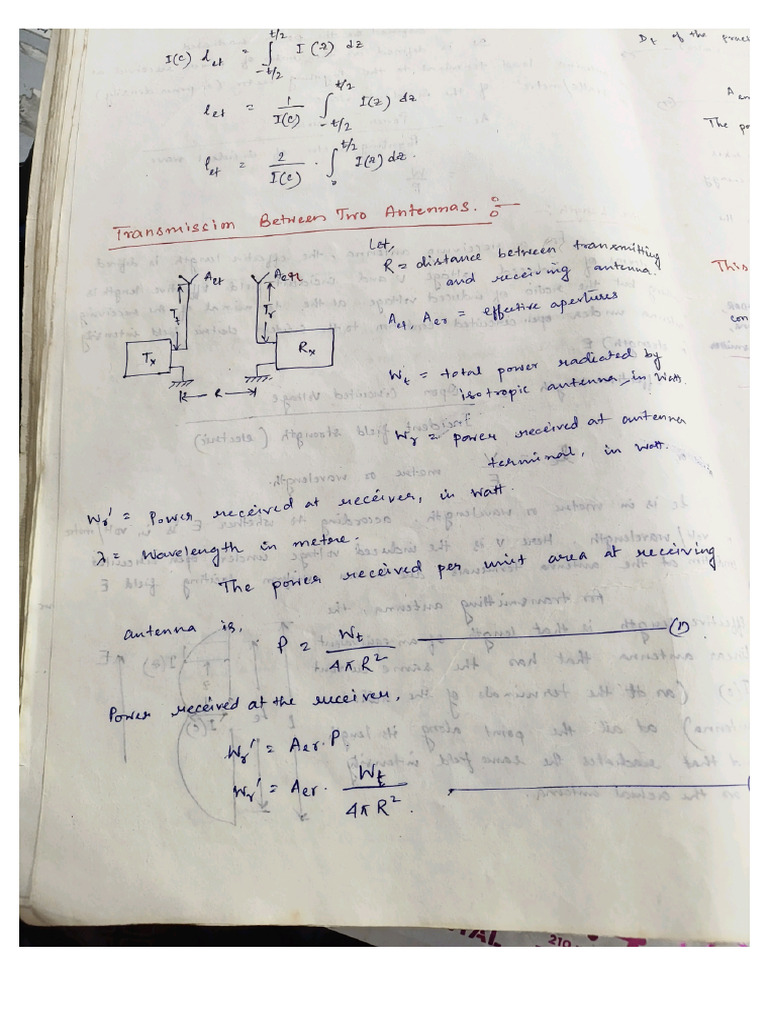 I(c) let = ∫_{-t/2}^{t/2} I(z) dz
let = 1/I(c) ∫_{-t/2}^{t/2} I(z) dz
let = 2/I(c) . ∫_{0}^{t/2} I(z) dz.
Transmission Between Two Antennas. :-
Let,
R = distance between transmitting
and receiving antenna.
Aet, Aer = effective apertures
Wt = total power radiated by
isotropic antenna, in watt
Wr = power received at antenna
terminal, in watt.
Aet
Aer
Tt
Tr
Tx
Rx
R
Wr' = Power received at receiver, in watt.
λ = Wavelength in metre.
The power received per unit area at receiving
antenna is,
P = Wt / 4πR² ——— (1)
Power received at the receiver,
Wr' = Aer . P
Wr' = Aer . Wt / 4πR².
Dt of the
The po
This
con